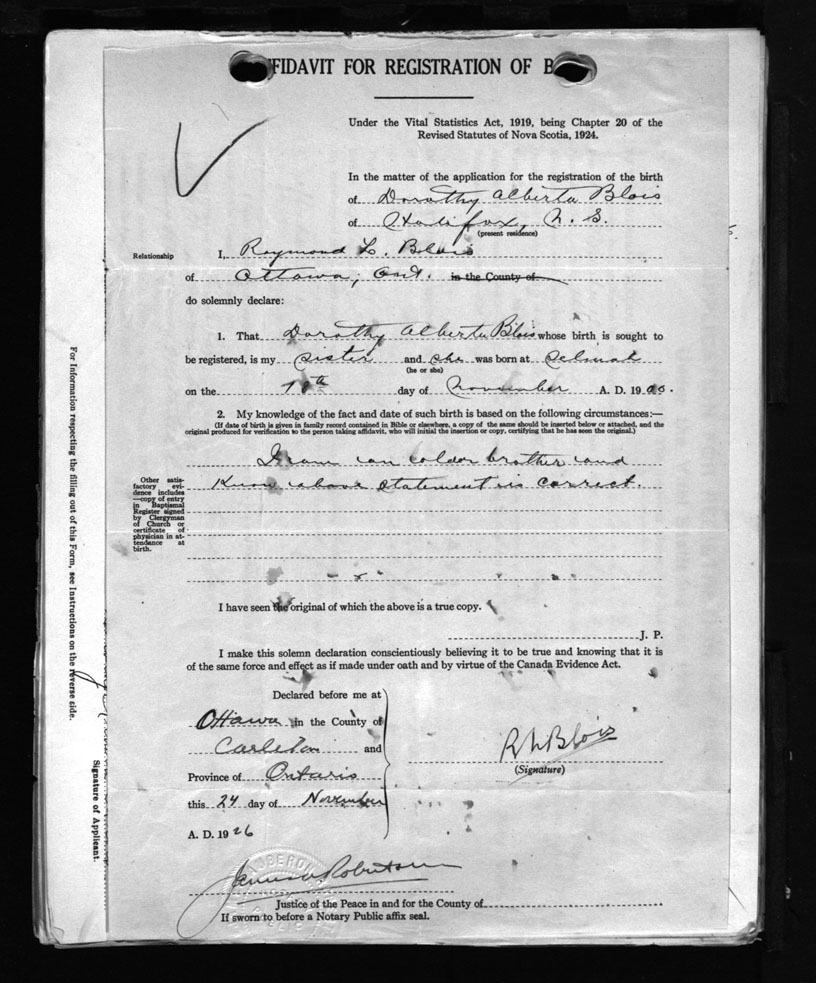 FIDAVIT FOR REGISTRATION OF B
Under the Vital Statistics Act, 1919, being Chapter 20 of the
Revised Statutes of Nova Scotia, 1924.
In the matter of the application for the registration of the birth
of Dorothy Alberta Blois
of Halifax, N. S.
(present residence)
Relationship
I, Raymond L. Blois
of Ottawa, Ont. in the County of
do solemnly declare:
1. That Dorothy Alberta Blois whose birth is sought to
be registered, is my sister and she was born at Selmah
(he or she)
on the day of November A. D. 19
2. My knowledge of the fact and date of such birth is based on the following circumstances:—
(If date of birth is given in family record contained in Bible or elsewhere, a copy of the same should be inserted below or attached, and the
original produced for verification to the person taking affidavit, who will initial the insertion or copy, certifying that he has seen the original.)
I am an older brother and
know above statement is correct.
Other satis-
factory evi-
dence includes
—copy of entry
in Baptismal
Register signed
by Clergyman
of Church or
certificate of
physician in at-
tendance at
birth.
I have seen the original of which the above is a true copy.
J. P.
I make this solemn declaration conscientiously believing it to be true and knowing that it is
of the same force and effect as if made under oath and by virtue of the Canada Evidence Act.
Declared before me at
Ottawa in the County of
Carleton and
Province of Ontario
this 24 day of November
A. D. 19 26
R L Blois
(Signature)
Robertson
Justice of the Peace in and for the County of
If sworn to before a Notary Public affix seal.
For Information respecting the filling out of this Form, see Instructions on the reverse side.
Signature of Applicant.